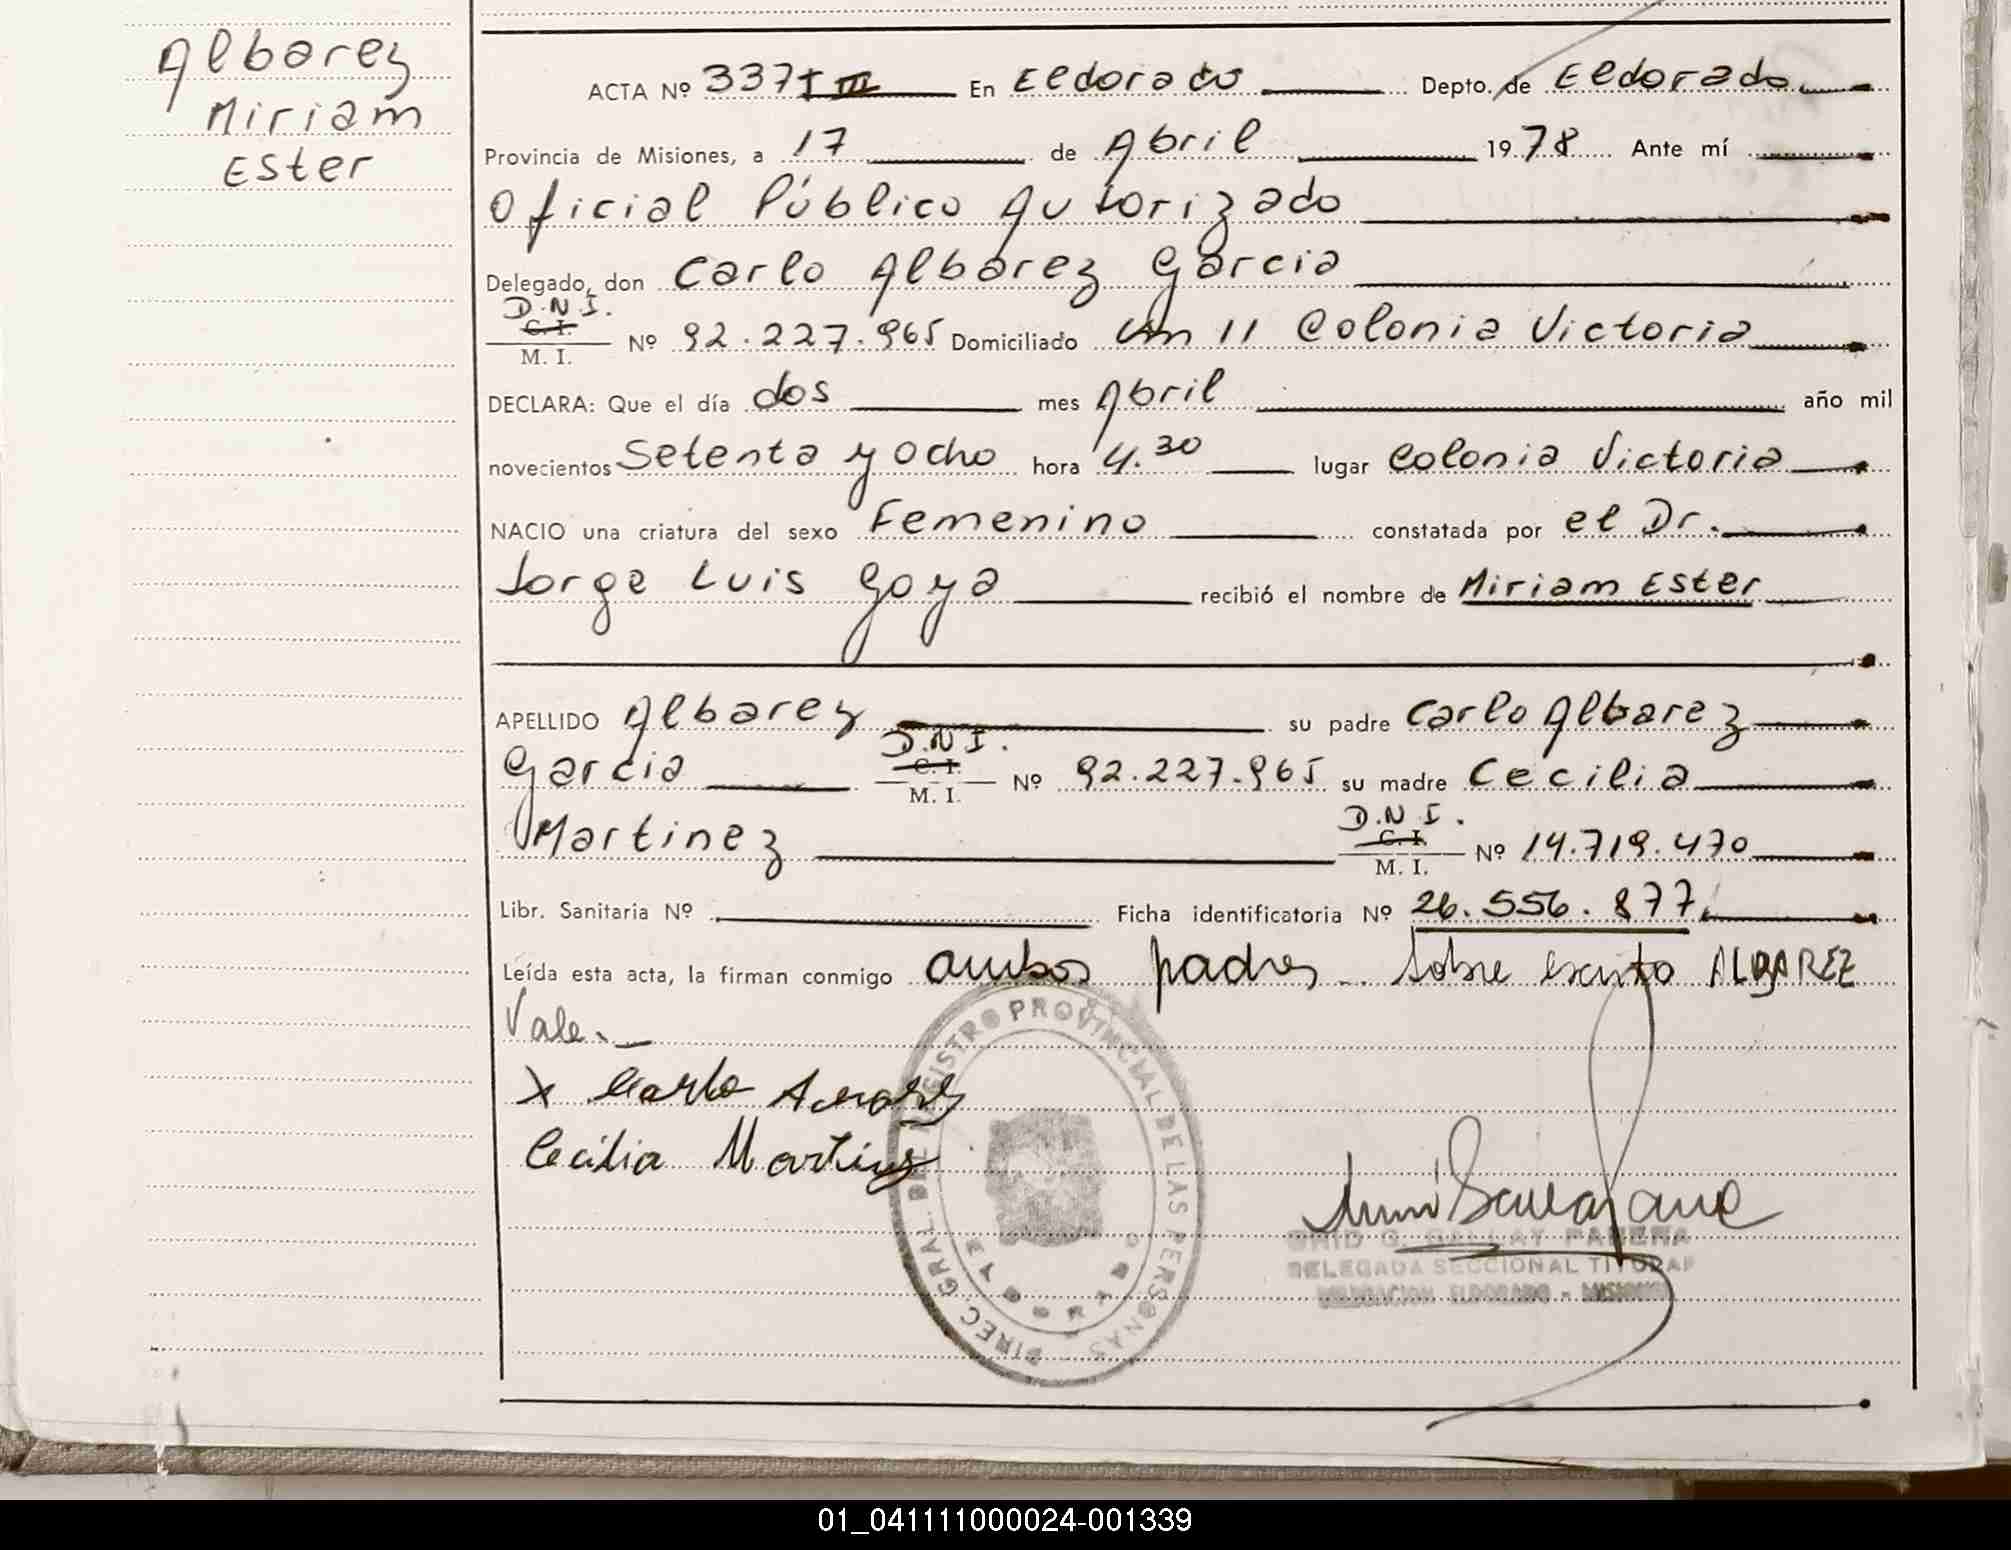 Albarez
Miriam
Ester
ACTA Nº 337 T III En Eldorado Depto. de Eldorado
Provincia de Misiones, a 17 de Abril 1978 Ante mí
Oficial Público Autorizado
Delegado, don Carlo Albarez Garcia
D.N.I.
C. I.
M. I. Nº 92.227.965 Domiciliado km 11 Colonia Victoria
DECLARA: Que el día dos mes Abril año mil
novecientos Setenta y Ocho hora 4.30 lugar Colonia Victoria
NACIO una criatura del sexo Femenino constatada por el Dr.
Jorge Luis Goya recibió el nombre de Miriam Ester
APELLIDO Albarez su padre Carlo Albarez
Garcia D.N.I. C. I. M. I. Nº 92.227.965 su madre Cecilia
Martinez D.N.I. C. I. M. I. Nº 14.719.470
Libr. Sanitaria Nº Ficha identificatoria Nº 26.556.877
Leída esta acta, la firman conmigo ambos padres Sobre escrito ALBAREZ
Vale.
X Carlo
Cecilia Martinez
DIREC. GRAL. DEL REGISTRO PROVINCIAL DE LAS PERSONAS
ELDORADO
G. GALLAY
DELEGADA SECCIONAL TITULAR
DELEGACION ELDORADO - MISIONES
01_041111000024-001339